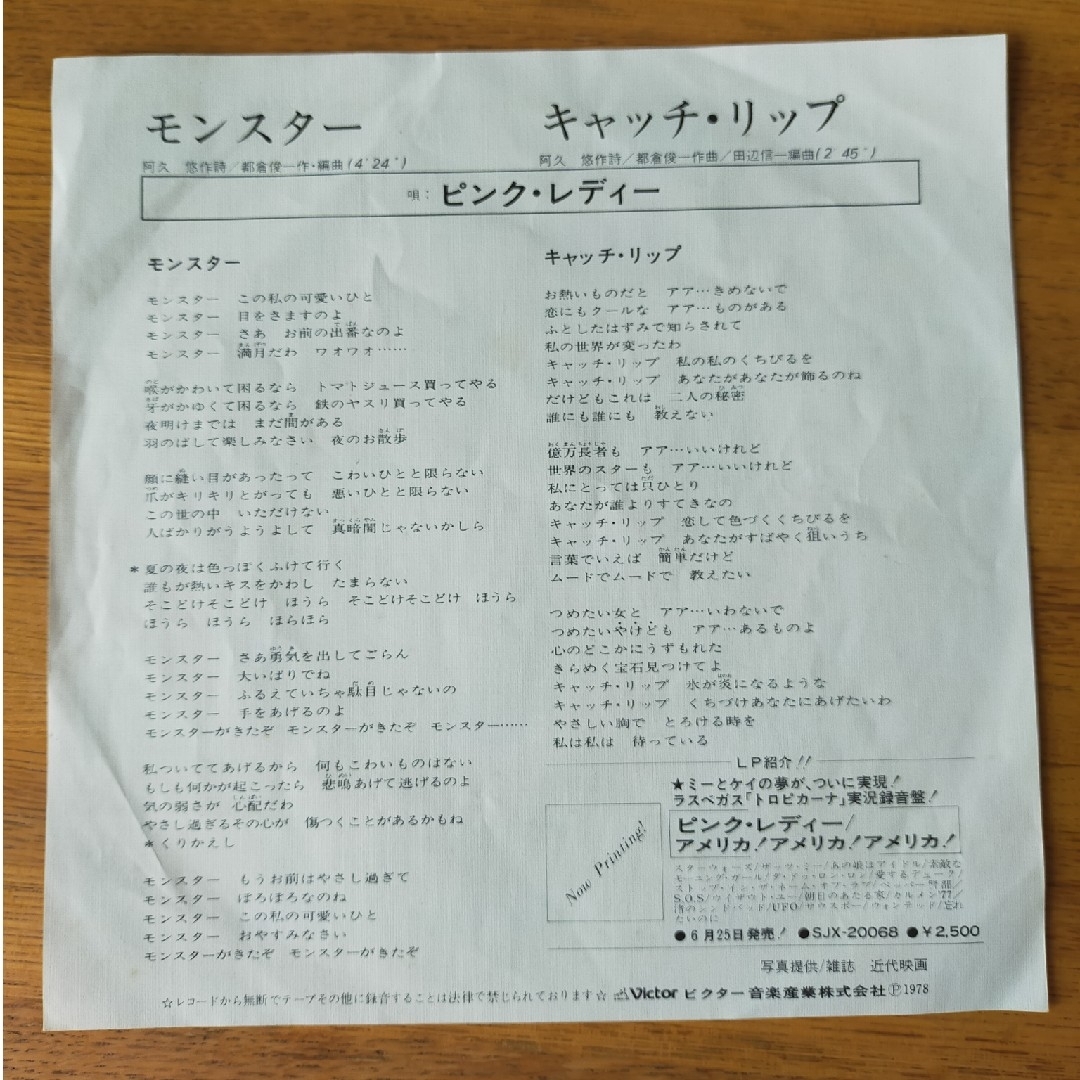 モンスター
キャッチ・リップ
阿久 悠作詩/都倉俊一作・編曲(4'24")
阿久 悠作詩/都倉俊一作曲/田辺信一編曲(2'45")
唄:ピンク・レディー
モンスター
モンスター この私の可愛いひと
モンスター 目をさますのよ
モンスター さあ お前の出番なのよ
モンスター 満月だわ ワオワオ……
喉がかわいて困るなら トマトジュース買ってやる
牙がかゆくて困るなら 鉄のヤスリ買ってやる
夜明けまでは まだ間がある
羽のばして楽しみなさい 夜のお散歩
顔に縫い目があったって こわいひとと限らない
爪がキリキリとがっても 悪いひとと限らない
この世の中 いただけない
人ばかりがうようよして 真暗闇じゃないかしら
*夏の夜は色っぽくふけて行く
誰もが熱いキスをかわし たまらない
そこどけそこどけ ほうら そこどけそこどけ ほうら
ほうら ほうら ほらほら
モンスター さあ勇気を出してごらん
モンスター 大いばりでね
モンスター ふるえていちゃ駄目じゃないの
モンスター 手をあげるのよ
モンスターがきたぞ モンスターがきたぞ モンスター……
私ついててあげるから 何もこわいものはない
もしも何かが起こったら 悲鳴あげて逃げるのよ
気の弱さが 心配だわ
やさし過ぎるその心が 傷つくことがあるかもね
*くりかえし
モンスター もうお前はやさし過ぎて
モンスター ぼろぼろなのね
モンスター この私の可愛いひと
モンスター おやすみなさい
モンスターがきたぞ モンスターがきたぞ
キャッチ・リップ
お熱いものだと アア…きめないで
恋にもクールな アア…ものがある
ふとしたはずみで知らされて
私の世界が変ったわ
キャッチ・リップ 私の私のくちびるを
キャッチ・リップ あなたがあなたが飾るのね
だけどもこれは 二人の秘密
誰にも誰にも 教えない
億万長者も アア…いいけれど
世界のスターも アア…いいけれど
私にとっては只ひとり
あなたが誰よりすてきなの
キャッチ・リップ 恋して色づくくちびるを
キャッチ・リップ あなたがすばやく狙いうち
言葉でいえば 簡単だけど
ムードでムードで 教えたい
つめたい女と アア…いわないで
つめたいやけども アア…あるものよ
心のどこかにうずもれた
きらめく宝石見つけてよ
キャッチ・リップ 氷が炎になるような
キャッチ・リップ くちづけあなたにあげたいわ
やさしい胸で とろける時を
私は私は 待っている
LP紹介!!
★ミーとケイの夢が、ついに実現!
ラスベガス「トロピカーナ」実況録音盤!
Now Printing!
ピンク・レディー/
アメリカ!アメリカ!アメリカ!
スターウォーズ/ザッツ・ミー/あの娘はアイドル/素敵な
モーニング・ガール/ダ・ドゥ・ロン・ロン/愛するデューク/
ストップ・イン・ザ・ネーム・オブ・ラブ/ペッパー警部/
S.O.S/ウイザウト・ユー/朝日のあたる家/カルメン'77/
渚のシンドバッド/UFO/サウスポー/ウォンテッド/忘れ
ないのに
●6月25日発売! ●SJX-20068 ●¥2,500
写真提供/雑誌 近代映画
☆レコードから無断でテープその他に録音することは法律で禁じられております☆ Victor ビクター音楽産業株式会社Ⓟ1978